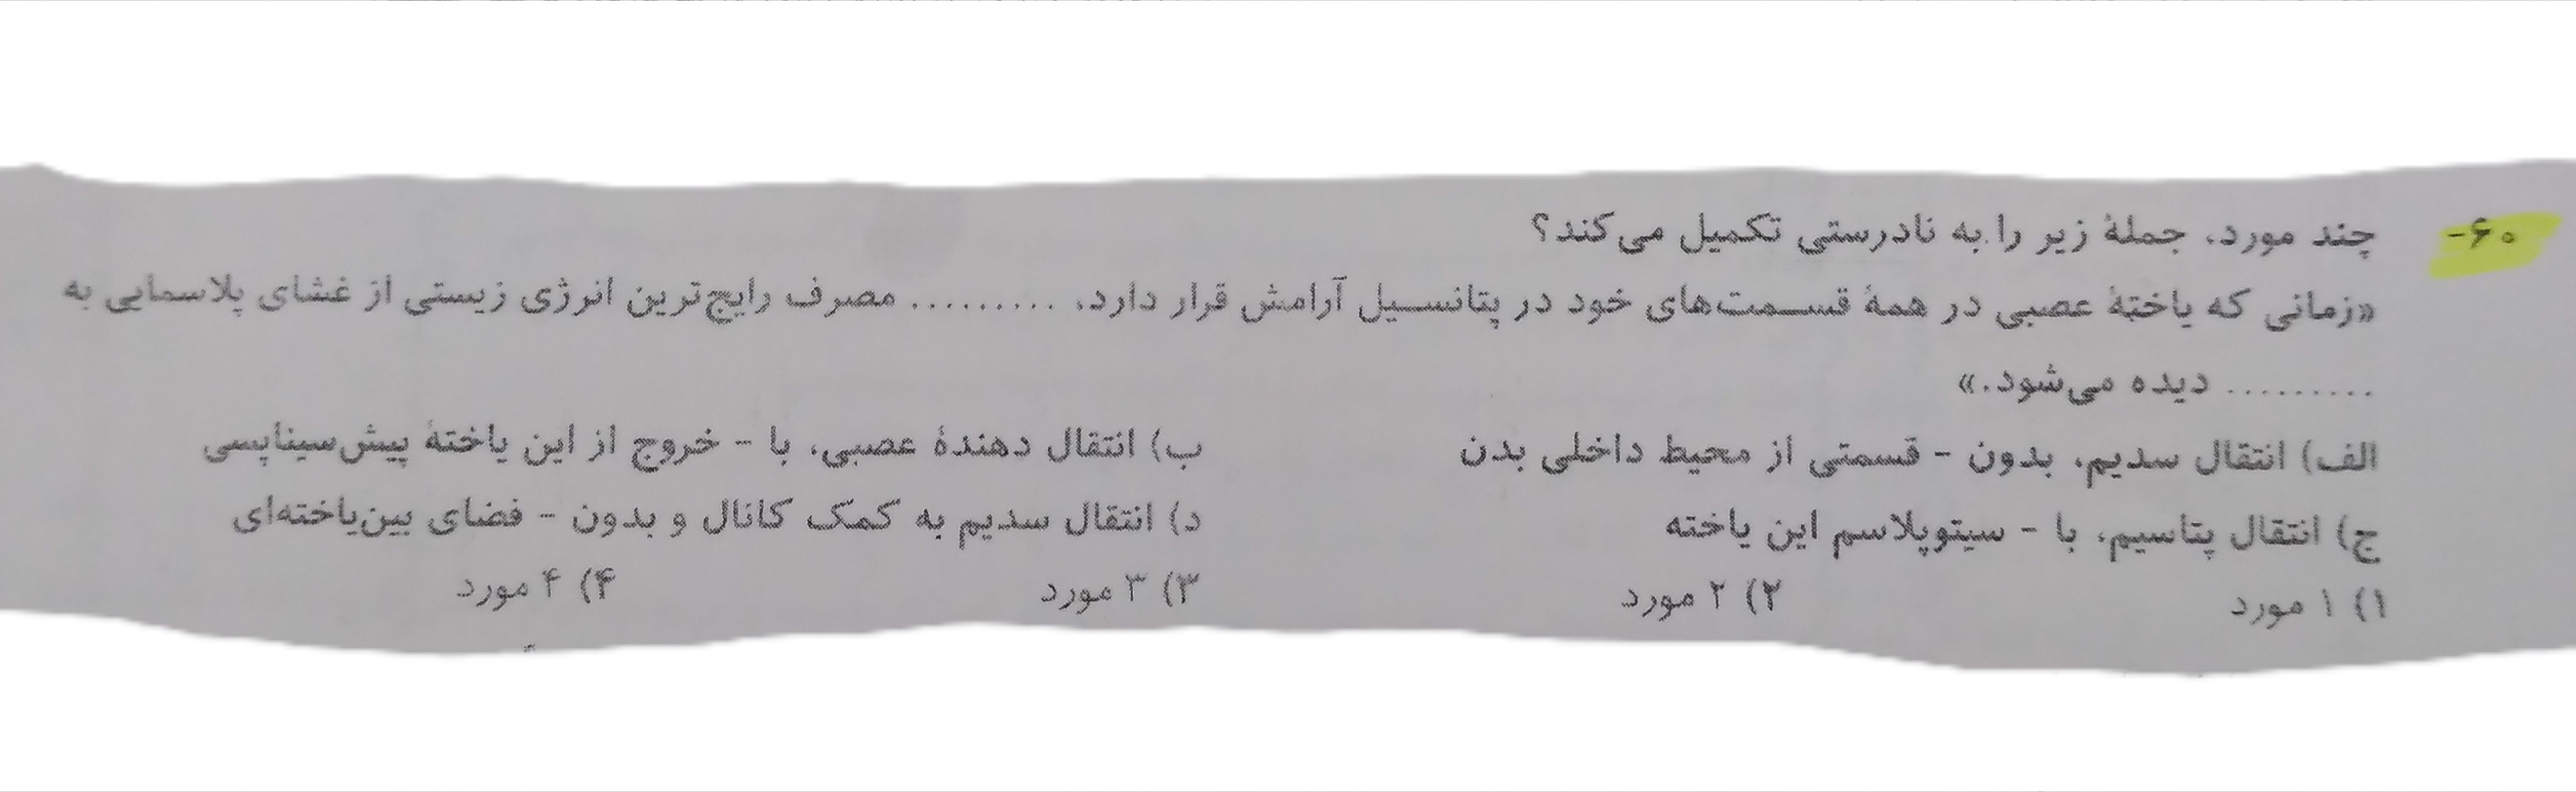 ۶۰- چند مورد، جملهٔ زیر را به نادرستی تکمیل می‌کند؟
«زمانی که یاختهٔ عصبی در همهٔ قسمت‌های خود در پتانسیل آرامش قرار دارد، ......... مصرف رایج‌ترین انرژی زیستی از غشای پلاسمایی به
......... دیده می‌شود.»
الف) انتقال سدیم، بدون - قسمتی از محیط داخلی بدن ب) انتقال دهندهٔ عصبی، با - خروج از این یاختهٔ پیش‌سیناپسی
ج) انتقال پتاسیم، با - سیتوپلاسم این یاخته د) انتقال سدیم به کمک کانال و بدون - فضای بین‌یاخته‌ای
۱) ۱ مورد ۲) ۲ مورد ۳) ۳ مورد ۴) ۴ مورد